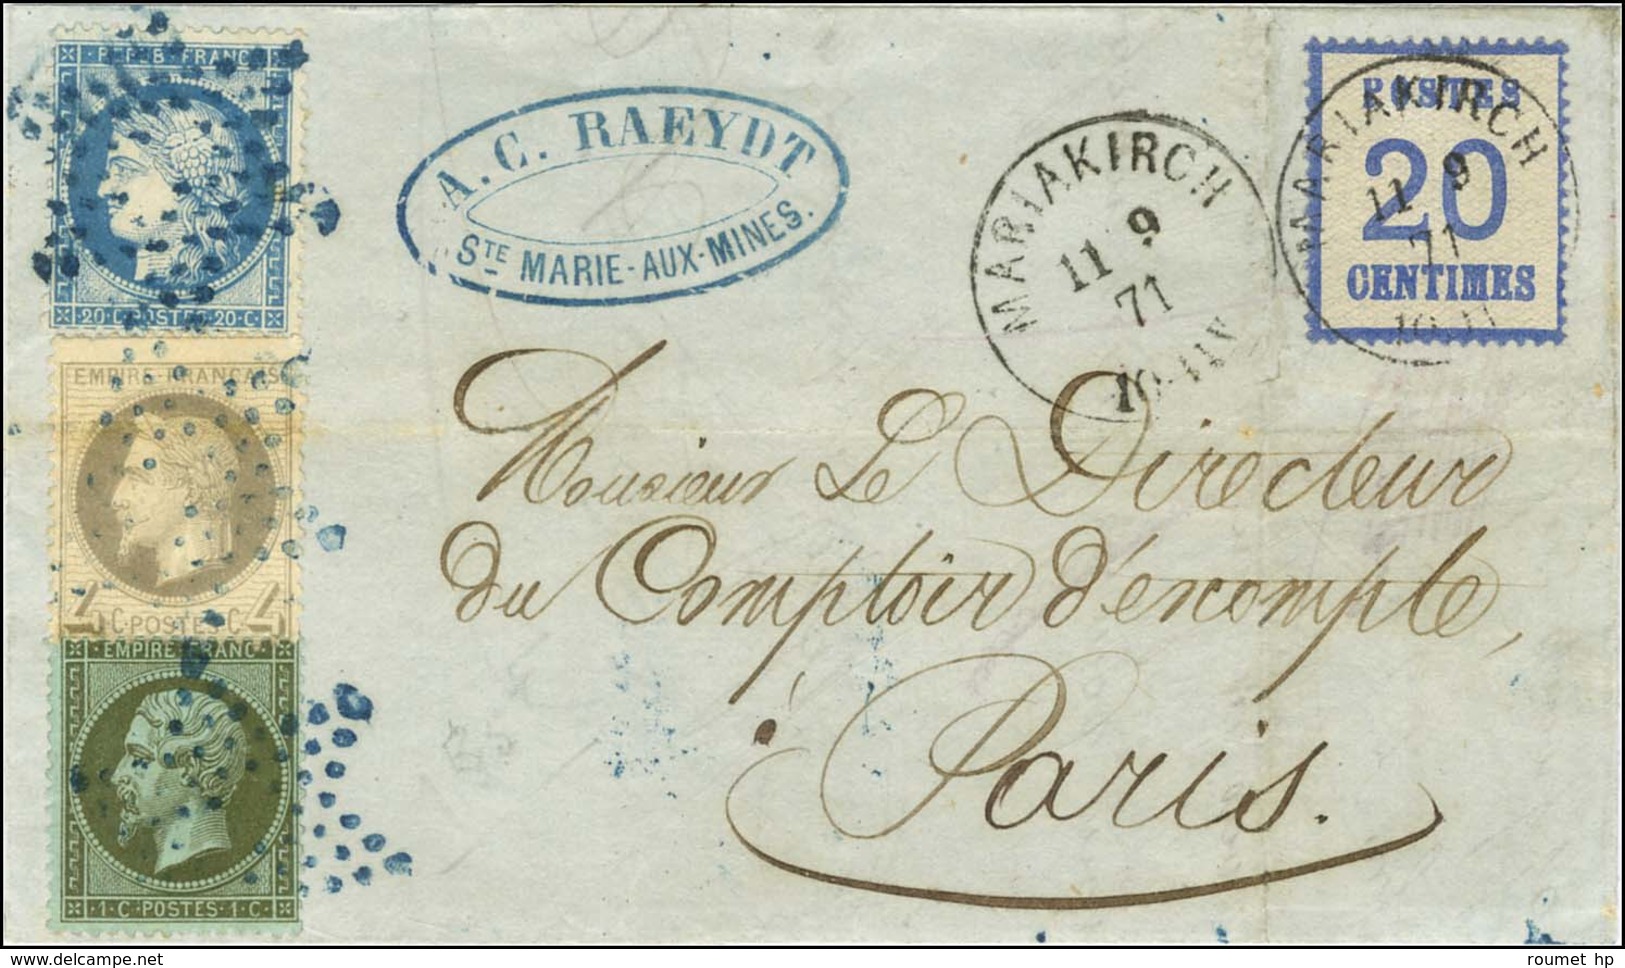 REPUB FRANC
20·C·POSTES·20·C
EMPIRE·FRANCAIS
4 C·POSTES C 4
EMPIRE FRANC
·1·C·POSTES·1·C·
A. C. RAEYDT
STE MARIE-AUX-MINES.
MARIAKIRCH
11 9
71
POSTES
20
CENTIMES
MARIAKIRCH
11 9
71
Monsieur Le Directeur
du Comptoir d'escompte,
à
Paris.
www.delcampe.net
roumet hp